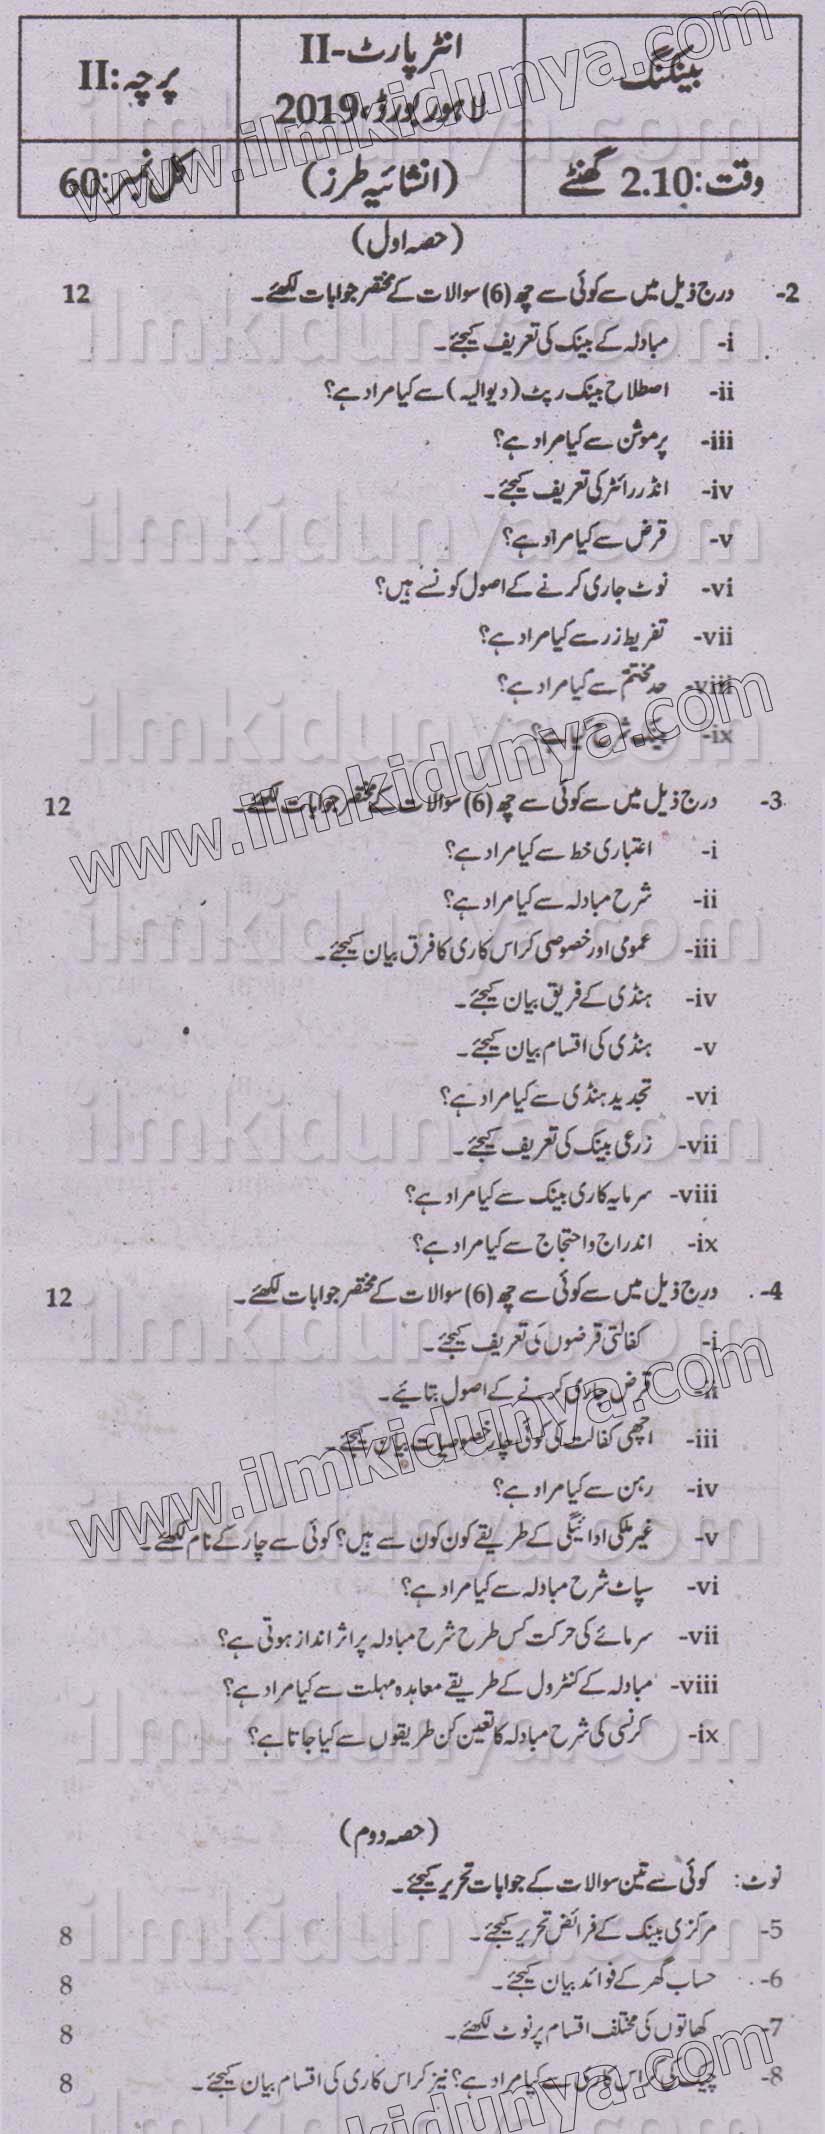 بینکنگ
انٹر پارٹ-II
لاہور بورڈ، 2019
پرچہ: II
وقت: 2.10 گھنٹے
(انشائیہ طرز)
کل نمبر: 60
(حصہ اول)
2- درج ذیل میں سے کوئی سے چھ (6) سوالات کے مختصر جوابات لکھئے۔ 12
i- مبادلہ کے بینک کی تعریف کیجئے۔
ii- اصطلاح بینک رپٹ (دیوالیہ) سے کیا مراد ہے؟
iii- پرموشن سے کیا مراد ہے؟
iv- انڈر رائٹر کی تعریف کیجئے۔
v- قرض سے کیا مراد ہے؟
vi- نوٹ جاری کرنے کے اصول کونسے ہیں؟
vii- تفریط زر سے کیا مراد ہے؟
viii- حد مختتم سے کیا مراد ہے؟
ix- بینک شرح کیا ہے؟
3- درج ذیل میں سے کوئی سے چھ (6) سوالات کے مختصر جوابات لکھئے۔ 12
i- اعتباری خط سے کیا مراد ہے؟
ii- شرح مبادلہ سے کیا مراد ہے؟
iii- عمومی اور خصوصی کراس کاری کا فرق بیان کیجئے۔
iv- ہنڈی کے فریق بیان کیجئے۔
v- ہنڈی کی اقسام بیان کیجئے۔
vi- تجدید ہنڈی سے کیا مراد ہے؟
vii- زرعی بینک کی تعریف کیجئے۔
viii- سرمایہ کاری بینک سے کیا مراد ہے؟
ix- اندراج و احتجاج سے کیا مراد ہے؟
4- درج ذیل میں سے کوئی سے چھ (6) سوالات کے مختصر جوابات لکھئے۔ 12
i- کفالتی قرضوں کی تعریف کیجئے۔
ii- قرض جاری کرنے کے اصول بتائیے۔
iii- اچھی کفالت کی کوئی چار خصوصیات بیان کیجئے۔
iv- رہن سے کیا مراد ہے؟
v- غیر ملکی ادائیگی کے طریقے کون کون سے ہیں؟ کوئی سے چار کے نام لکھئے۔
vi- سپاٹ شرح مبادلہ سے کیا مراد ہے؟
vii- سرمائے کی حرکت کس طرح شرح مبادلہ پر اثر انداز ہوتی ہے؟
viii- مبادلہ کے کنٹرول کے طریقے معاہدہ مہلت سے کیا مراد ہے؟
ix- کرنسی کی شرح مبادلہ کا تعین کن طریقوں سے کیا جاتا ہے؟
(حصہ دوم)
نوٹ: کوئی سے تین سوالات کے جوابات تحریر کیجئے۔
5- مرکزی بینک کے فرائض تحریر کیجئے۔ 8
6- حساب گھر کے فوائد بیان کیجئے۔ 8
7- کھاتوں کی مختلف اقسام پر نوٹ لکھئے۔ 8
8- چیک کی کراس کاری سے کیا مراد ہے؟ نیز کراس کاری کی اقسام بیان کیجئے۔ 8
www.ilmkidunya.com
ilmkidunya.com
ilmkidunya.com
www.ilmkidunya.com
ilmkidunya.com
ilmkidunya.com
ilmkidunya.com
ilmkidunya.com
www.ilmkidunya.com
ilmkidunya.com
ilmkidunya.com
ilmkidunya.com
kidunya.com